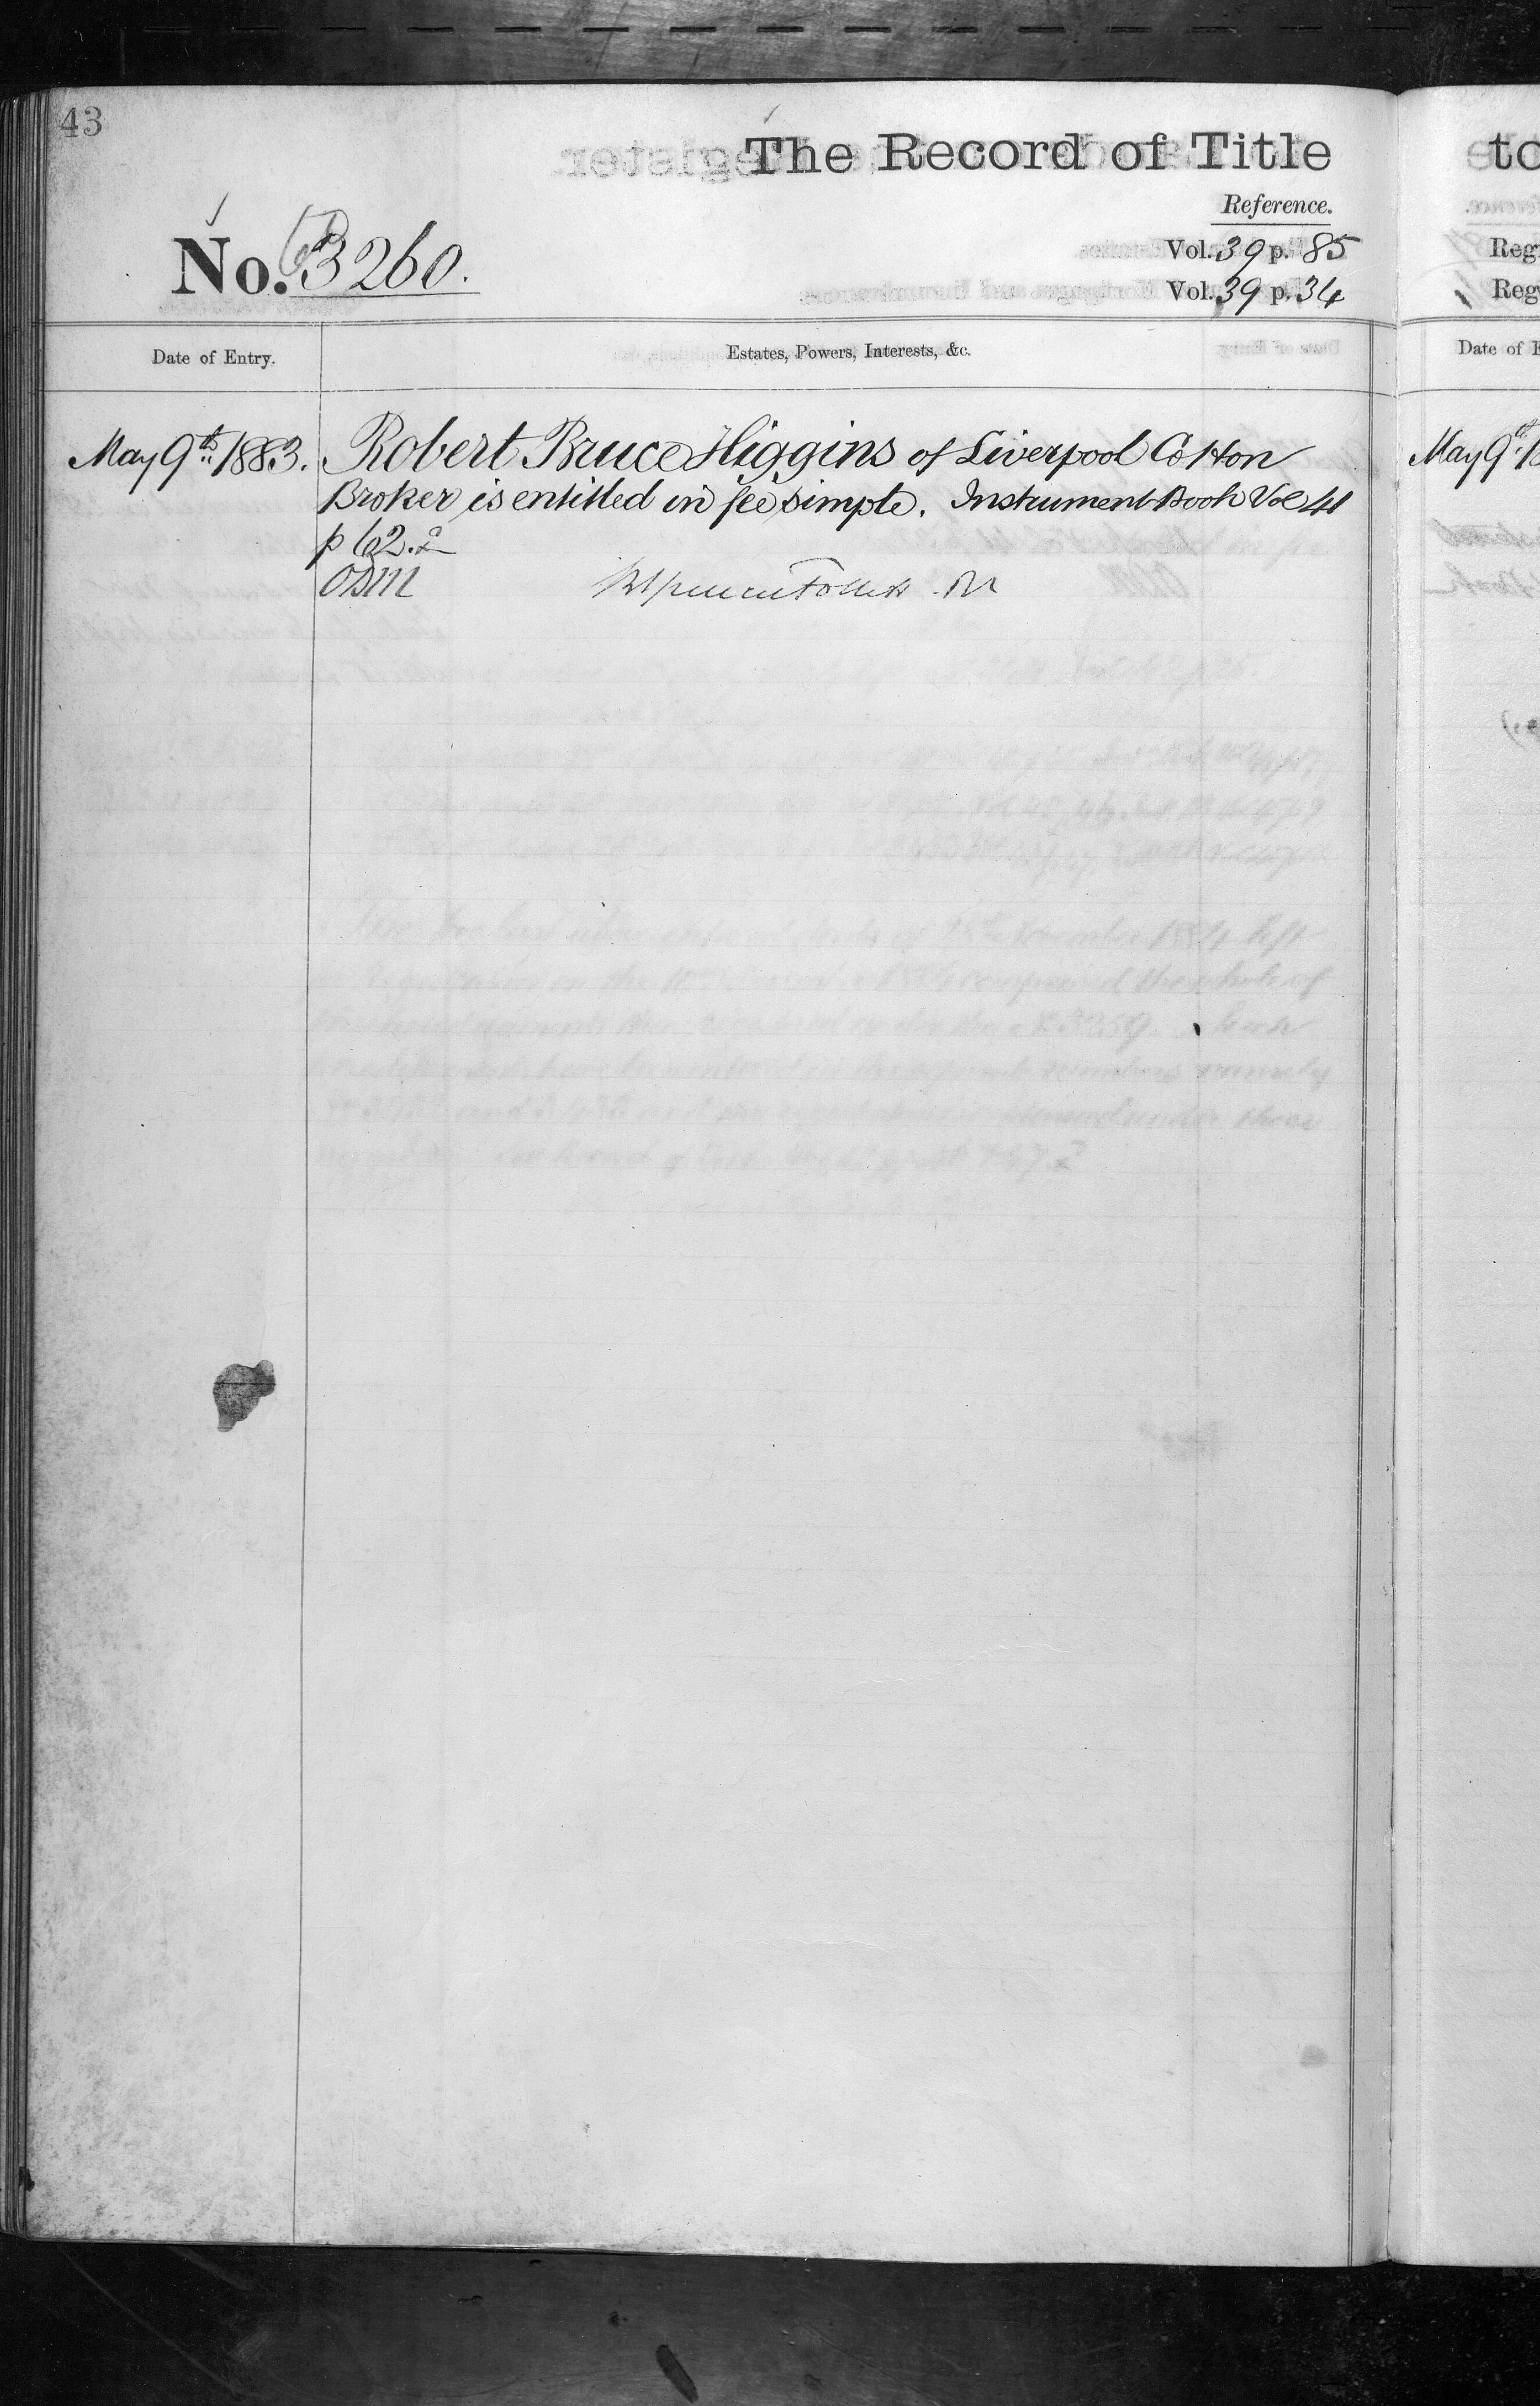 43
The Record of Title
Reference.
No. 3260.
Vol. 39 p. 85
Vol. 39 p. 34
Date of Entry.
Estates, Powers, Interests, &c.
May 9th 1883.
Robert Bruce Higgins of Liverpool Cotton
Broker is entitled in fee simple. Instrument Book Vol 41
p 62.
to
Date of
May 9th